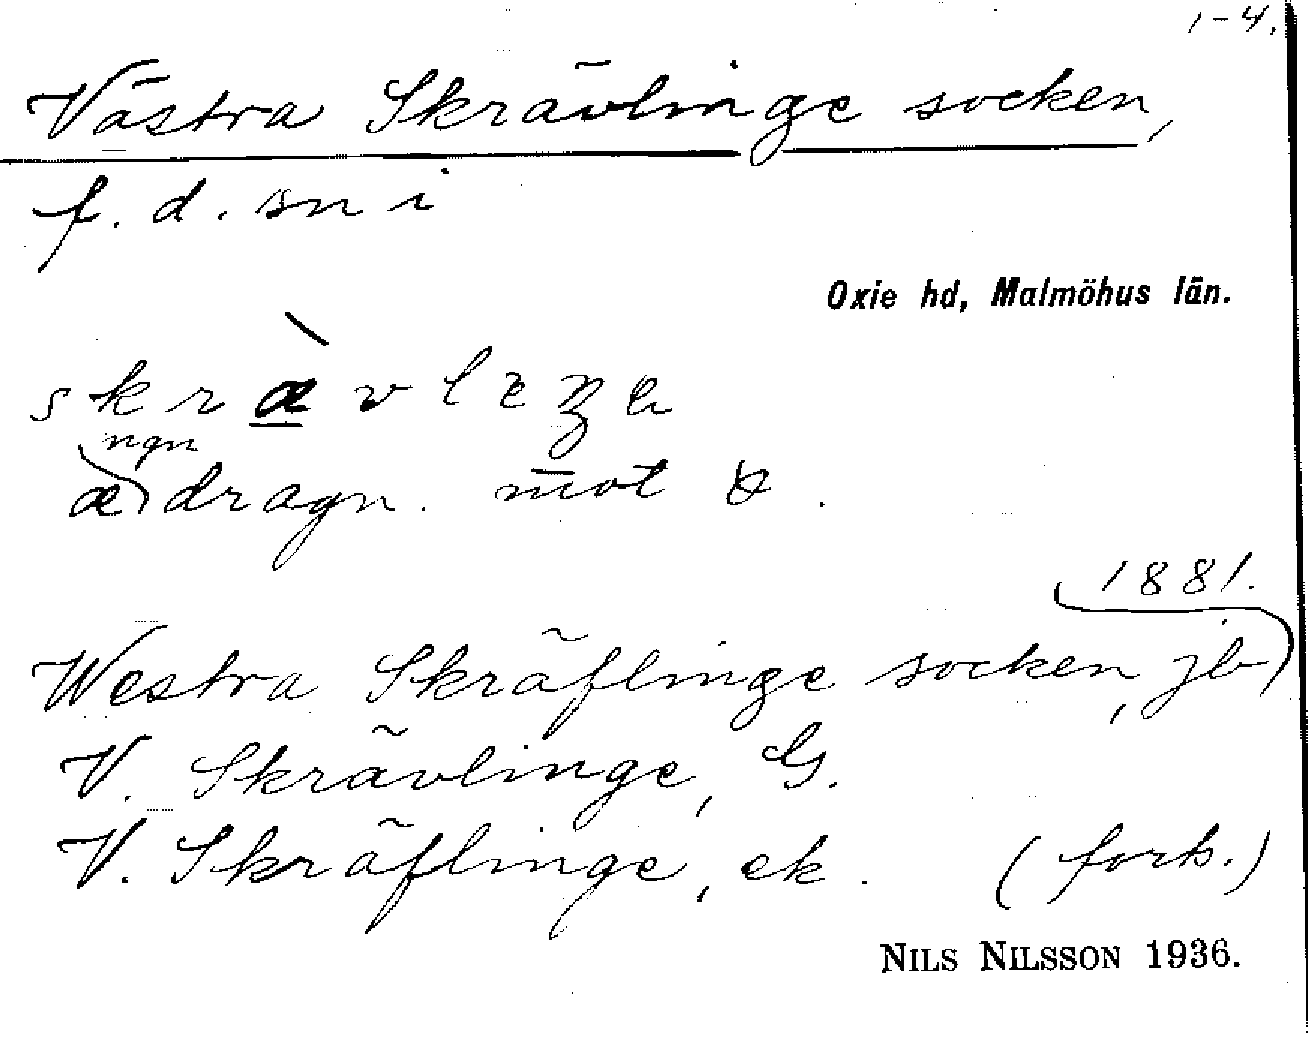 1-4.
Västra Skrävlinge socken,
f. d. sn i
Oxie hd, Malmöhus län.
ngn
æ) dragn. mot
1881.
Westra Skräflinge socken, jb
V. Skrävlinge, G.
V. Skräflinge, ek. (forts.)
NILS NILSSON 1936.